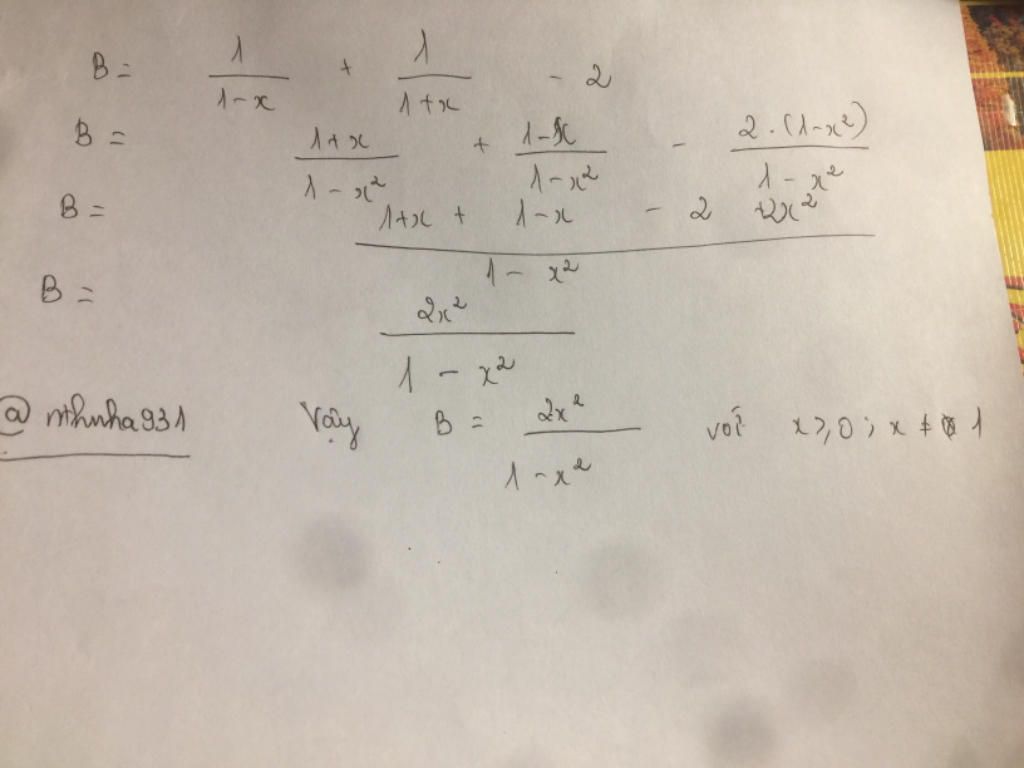 B = 1/(1-x) + 1/(1+x) - 2
B = (1+x)/(1-x²) + (1-x)/(1-x²) - 2.(1-x²)/(1-x²)
B = (1+x + 1-x - 2 +2x²)/(1-x²)
B = 2x²/(1-x²)
@nthnha931 Vậy B = 2x²/(1-x²) với x≥0; x ≠ 1